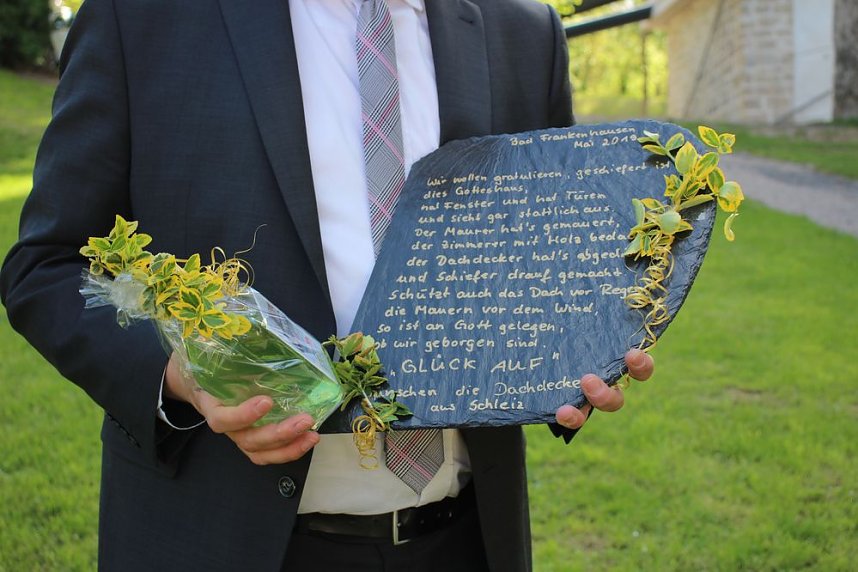 Bad Frankenhausen
Mai 2019
Wir wollen gratulieren, geschiefert ist
dies Gotteshaus,
hat Fenster und hat Türen
und sieht gar stattlich aus.
Der Maurer hat's gemauert,
der Zimmerer mit Holz
der Dachdecker hat's
und Schiefer drauf gemacht.
Schützet auch das Dach vor
die Mauern vor dem Wind,
so ist an Gott gelegen,
ob wir geborgen sind.
„GLÜCK AUF"
die
aus Schleiz